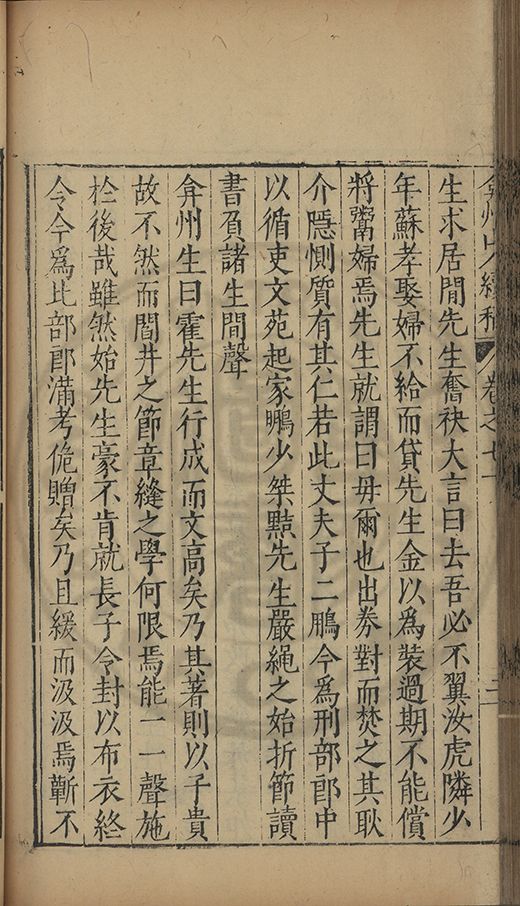 弇州山人續稿 卷之七十 二
生求居閒先生奮袂大言曰去吾必不翼汝虎隣少
年蘇孝娶婦不給而貸先生金以爲裝過期不能償
將鬻婦焉先生就謂曰毋爾也出券對而焚之其耿
介隱惻質有其仁若此丈夫子二鵬今爲刑部郎中
以循吏文苑起家鵬少桀黠先生嚴繩之始折節讀
書頁諸生間聲
弇州生曰霍先生行成而文高矣乃其著則以子貴
故不然而閭井之節章縫之學何限焉能一一聲施
於後哉雖然始先生豪不肯就長子令封以布衣終
令今爲比部郎滿考佹贈矣乃且緩而汲汲焉蘄不